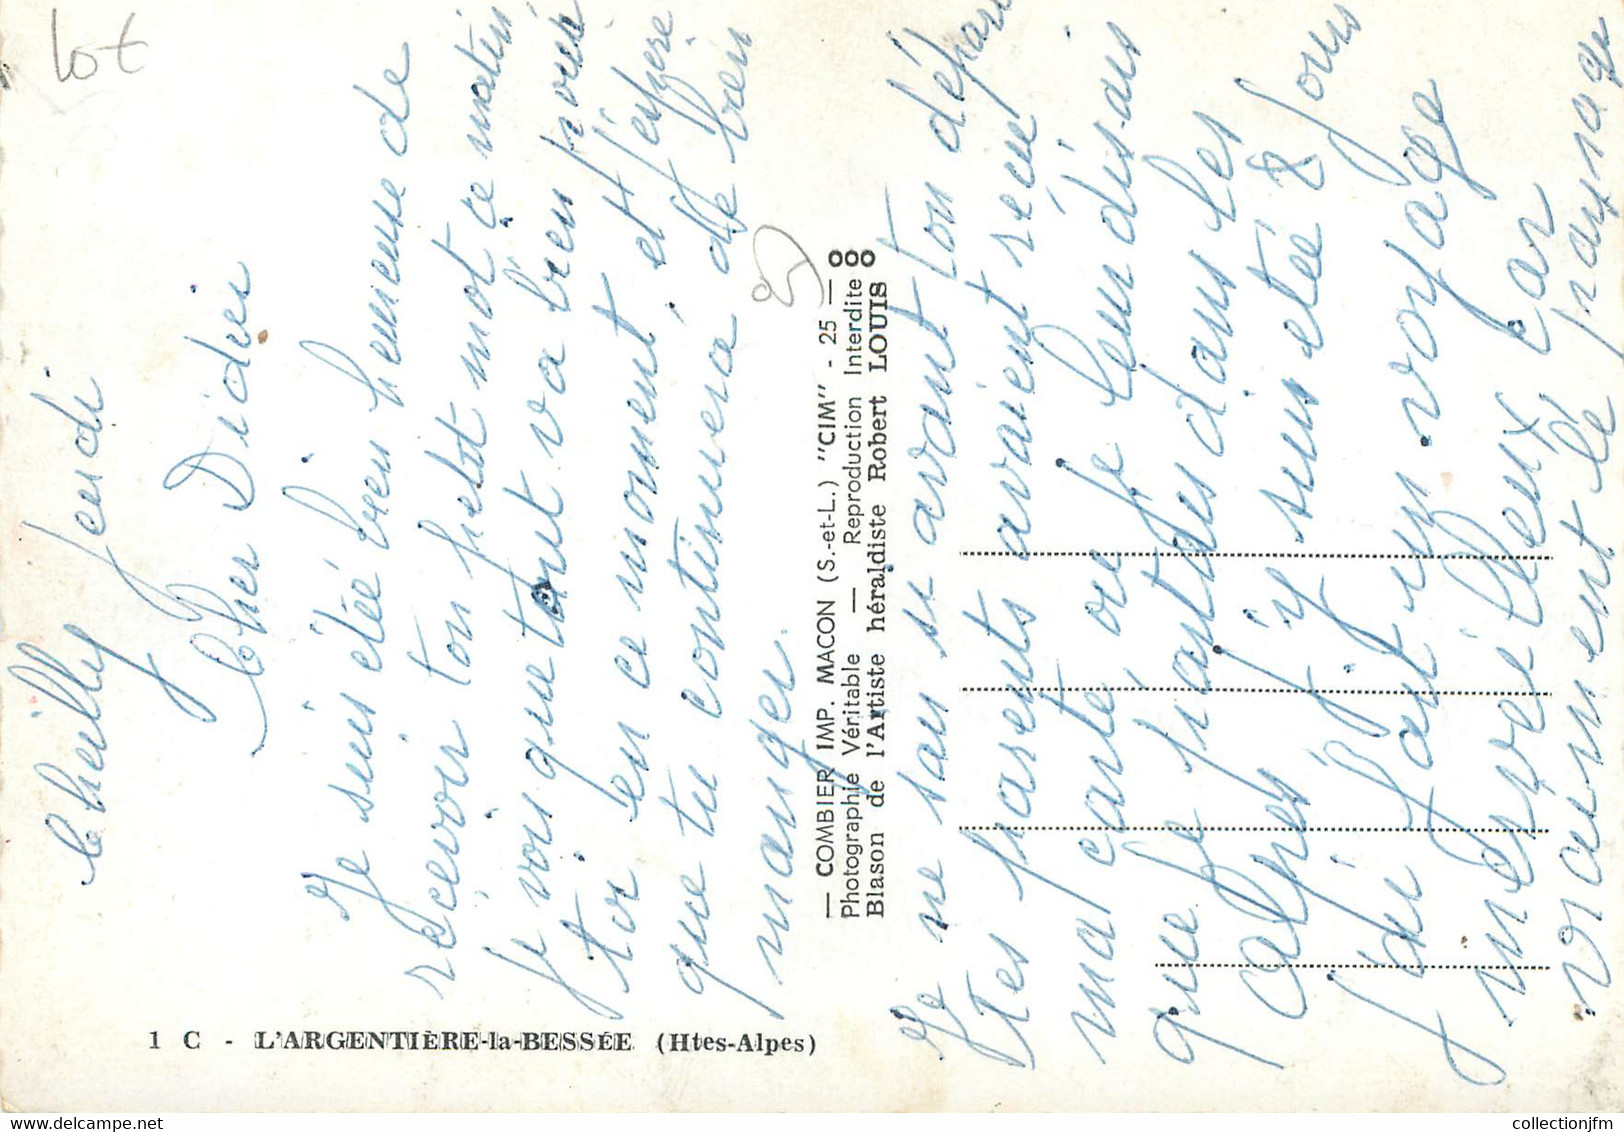 lot
Cheilly jeudi
Cher Didier
Je suis étée bien heureuse de
recevoir ton petit mot ce matin
je vois que tout va bien pour
toi en ce moment et j'espère
que tu continuera de bien
manger.
1 C - L'ARGENTIÈRE-la-BESSÉE (Htes-Alpes)
— COMBIER IMP. MACON (S.-et-L.) "CIM" - 25 —
Photographie Véritable — Reproduction Interdite
Blason de l'Artiste héraldiste Robert LOUIS
Je ne sais si avant ton départ
tes parents avaient reçue
ma carte ou je leur disais
que je partais dans les
Alpes j'y suis etée 8 jours
j'ai fait un voyage
merveilleux car
vraiment le
collectionjfm